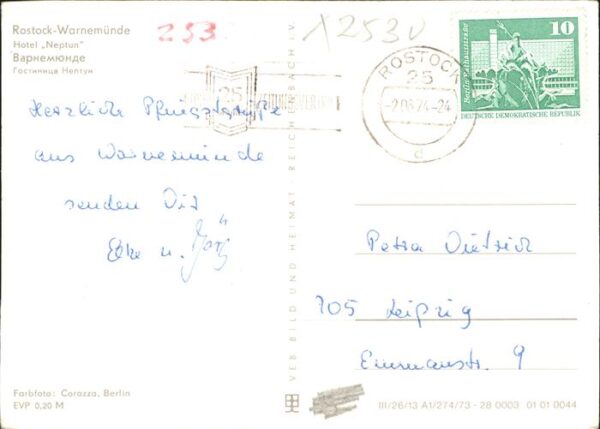 Rostock-Warnemünde
Hotel „Neptun"
Варнемюнде
Гостиница Нептун
253
12530
ROSTOCK
25
-2.06.74-24
d
25
10
Berlin, Rathausstraße
DEUTSCHE DEMOKRATISCHE REPUBLIK
Herzliche Pfingstgrüße
aus Warnemünde
senden Dir
Elke u. Jörg
Petra Dietrich
705 Leipzig
Emmausstr. 9
VEB BILD UND HEIMAT REICHENBACH I. V.
Farbfoto: Corazza, Berlin
EVP 0,20 M
III/26/13 A1/274/73 - 28 0003 01 01 0044